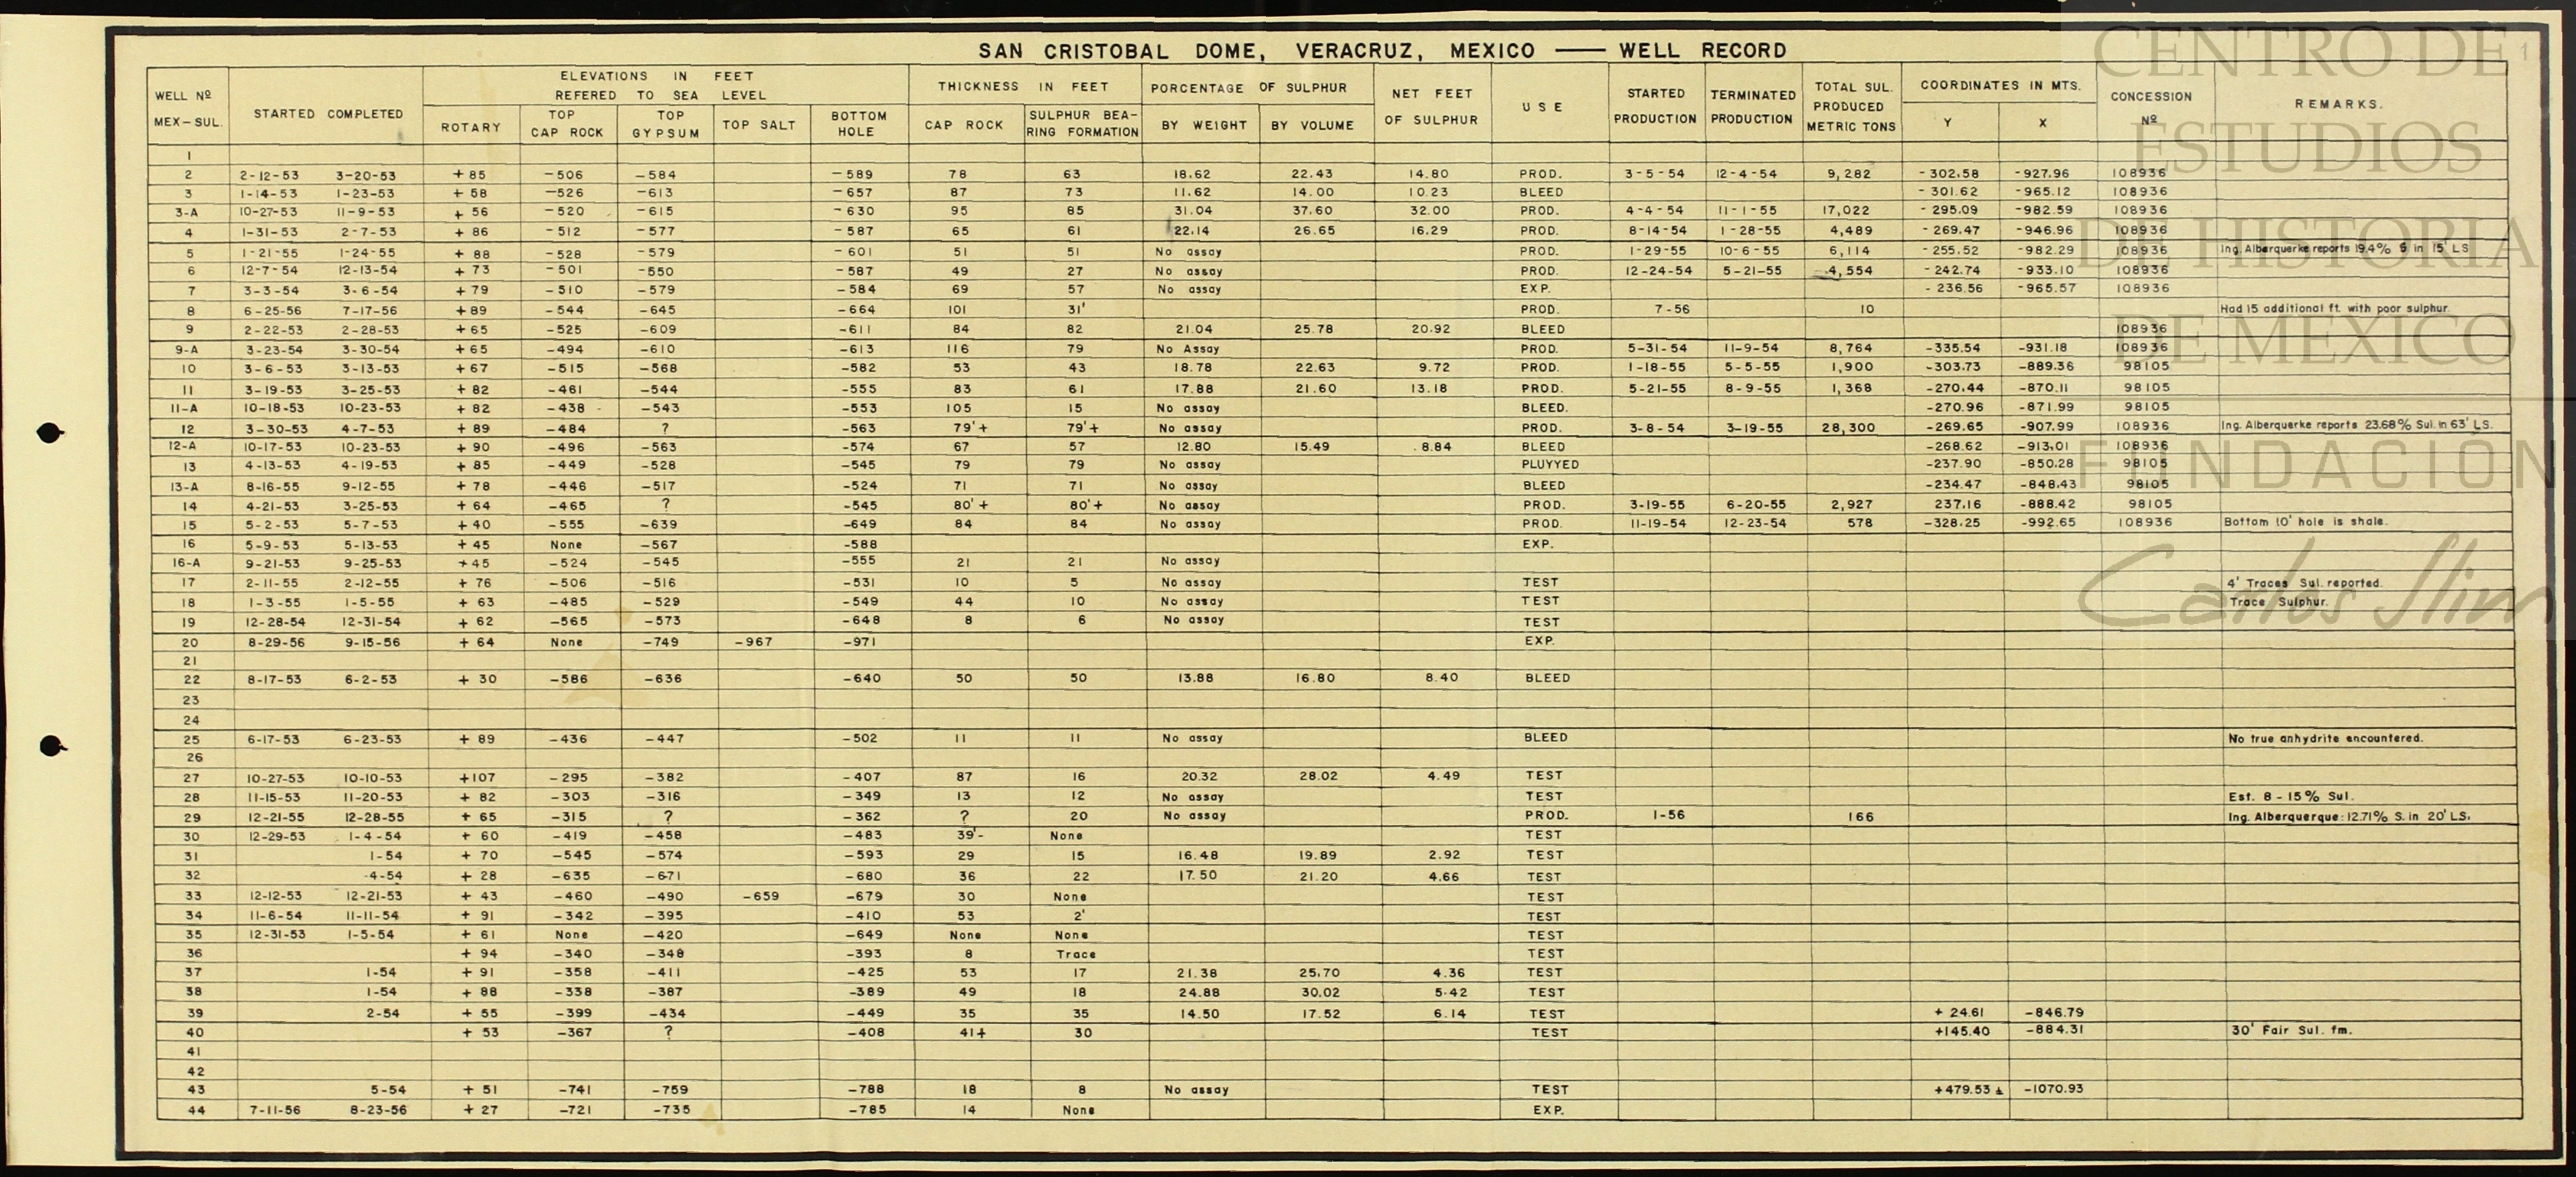 SAN CRISTOBAL DOME, VERACRUZ, MEXICO — WELL RECORD
WELL Nº MEX-SUL. STARTED COMPLETED ELEVATIONS IN FEET REFERED TO SEA LEVEL THICKNESS IN FEET PORCENTAGE OF SULPHUR NET FEET OF SULPHUR USE STARTED PRODUCTION TERMINATED PRODUCTION TOTAL SUL. PRODUCED METRIC TONS COORDINATES IN MTS. CONCESSION Nº REMARKS.
ROTARY TOP CAP ROCK TOP GYPSUM TOP SALT BOTTOM HOLE CAP ROCK SULPHUR BEA-RING FORMATION BY WEIGHT BY VOLUME Y X
1
2 2-12-53 3-20-53 +85 -506 -584 -589 78 63 18.62 22.43 14.80 PROD. 3-5-54 12-4-54 9,282 -302.58 -927.96 108936
3 1-14-53 1-23-53 +58 -526 -613 -657 87 73 11.62 14.00 10.23 BLEED -301.62 -965.12 108936
3-A 10-27-53 11-9-53 +56 -520 -615 -630 95 85 31.04 37.60 32.00 PROD. 4-4-54 11-1-55 17,022 -295.09 -982.59 108936
4 1-31-53 2-7-53 +86 -512 -577 -587 65 61 22.14 26.65 16.29 PROD. 8-14-54 1-28-55 4,489 -269.47 -946.96 108936
5 1-21-55 1-24-55 +88 -528 -579 -601 51 51 No assay PROD. 1-29-55 10-6-55 6,114 -255.52 -982.29 108936 Ing. Alberquerke reports 19.4% S in 15' LS
6 12-7-54 12-13-54 +73 -501 -550 -587 49 27 No assay PROD. 12-24-54 5-21-55 4,554 -242.74 -933.10 108936
7 3-3-54 3-6-54 +79 -510 -579 -584 69 57 No assay EXP. -236.56 -965.57 108936
8 6-25-56 7-17-56 +89 -544 -645 -664 101 31' PROD. 7-56 10 Had 15 additional ft. with poor sulphur.
9 2-22-53 2-28-53 +65 -525 -609 -611 84 82 21.04 25.78 20.92 BLEED 108936
9-A 3-23-54 3-30-54 +65 -494 -610 -613 116 79 No Assay PROD. 5-31-54 11-9-54 8,764 -335.54 -931.18 108936
10 3-6-53 3-13-53 +67 -515 -568 -582 53 43 18.78 22.63 9.72 PROD. 1-18-55 5-5-55 1,900 -303.73 -889.36 98105
11 3-19-53 3-25-53 +82 -461 -544 -555 83 61 17.88 21.60 13.18 PROD. 5-21-55 8-9-55 1,368 -270.44 -870.11 98105
11-A 10-18-53 10-23-53 +82 -438 -543 -553 105 15 No assay BLEED. -270.96 -871.99 98105
12 3-30-53 4-7-53 +89 -484 ? -563 79'+ 79'+ No assay PROD. 3-8-54 3-19-55 28,300 -269.65 -907.99 108936 Ing. Alberquerke reports 23.68% Sul. in 63' LS.
12-A 10-17-53 10-23-53 +90 -496 -563 -574 67 57 12.80 15.49 8.84 BLEED -268.62 -913.01 108936
13 4-13-53 4-19-53 +85 -449 -528 -545 79 79 No assay PLUYYED -237.90 -850.28 98105
13-A 8-16-55 9-12-55 +78 -446 -517 -524 71 71 No assay BLEED -234.47 -848.43 98105
14 4-21-53 3-25-53 +64 -465 ? -545 80'+ 80'+ No assay PROD. 3-19-55 6-20-55 2,927 237.16 -888.42 98105
15 5-2-53 5-7-53 +40 -555 -639 -649 84 84 No assay PROD. 11-19-54 12-23-54 578 -328.25 -992.65 108936 Bottom 10' hole is shale.
16 5-9-53 5-13-53 +45 None -567 -588 EXP.
16-A 9-21-53 9-25-53 +45 -524 -545 -555 21 21 No assay
17 2-11-55 2-12-55 +76 -506 -516 -531 10 5 No assay TEST 4' Traces Sul. reported.
18 1-3-55 1-5-55 +63 -485 -529 -549 44 10 No assay TEST Trace Sulphur.
19 12-28-54 12-31-54 +62 -565 -573 -648 8 6 No assay TEST
20 8-29-56 9-15-56 +64 None -749 -967 -971 EXP.
21
22 8-17-53 6-2-53 +30 -586 -636 -640 50 50 13.88 16.80 8.40 BLEED
23
24
25 6-17-53 6-23-53 +89 -436 -447 -502 11 11 No assay BLEED No true anhydrite encountered.
26
27 10-27-53 10-10-53 +107 -295 -382 -407 87 16 20.32 28.02 4.49 TEST
28 11-15-53 11-20-53 +82 -303 -316 -349 13 12 No assay TEST Est. 8-15% Sul.
29 12-21-55 12-28-55 +65 -315 ? -362 ? 20 No assay PROD. 1-56 166 Ing. Alberquerque: 12.71% S. in 20' LS.
30 12-29-53 1-4-54 +60 -419 -458 -483 39'- None TEST
31 1-54 +70 -545 -574 -593 29 15 16.48 19.89 2.92 TEST
32 -4-54 +28 -635 -671 -680 36 22 17.50 21.20 4.66 TEST
33 12-12-53 12-21-53 +43 -460 -490 -659 -679 30 None TEST
34 11-6-54 11-11-54 +91 -342 -395 -410 53 2' TEST
35 12-31-53 1-5-54 +61 None -420 -649 None None TEST
36 +94 -340 -348 -393 8 Trace TEST
37 1-54 +91 -358 -411 -425 53 17 21.38 25.70 4.36 TEST
38 1-54 +88 -338 -387 -389 49 18 24.88 30.02 5.42 TEST
39 2-54 +55 -399 -434 -449 35 35 14.50 17.52 6.14 TEST +24.61 -846.79
40 +53 -367 ? -408 41+ 30 TEST +145.40 -884.31 30' Fair Sul. fm.
41
42
43 5-54 +51 -741 -759 -788 18 8 No assay TEST +479.53± -1070.93
44 7-11-56 8-23-56 +27 -721 -735 -785 14 None EXP.
CENTRO DE
ESTUDIOS
DE HISTORIA
DE MEXICO
FUNDACIÓN
Carlos Slim
1